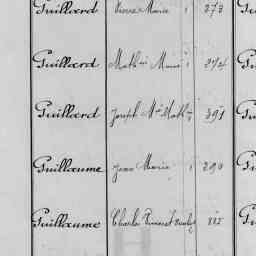 Guilloerd Pierre Marie 1 273 Gu
Guilloerd Math Marie 1 274 Gu
Guilloerd Joseph M Math 391 Gu
Guillaume Jean Marie 1 290 Gu
Guillaume Charles Vincent 885 Gu